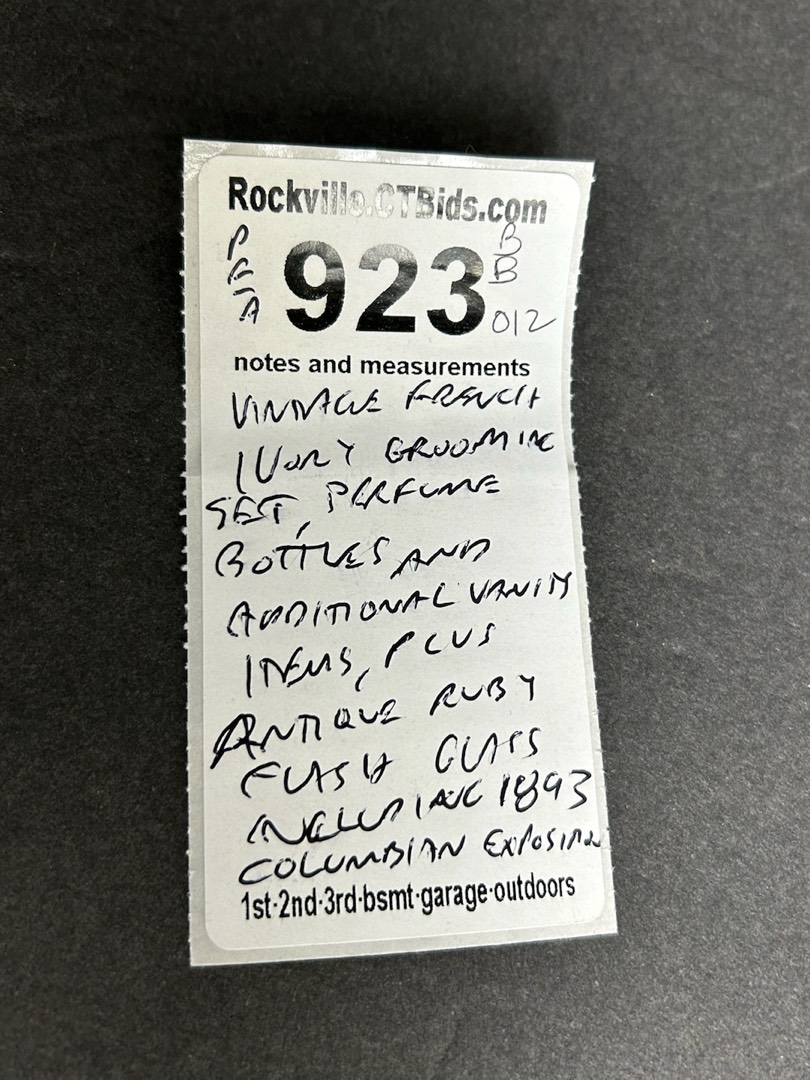 Rockville.CTBids.com
P
B
923
B
A
012
notes and measurements
VINTAGE FRENCH
IVORY GROOMING
SET, PERFUME
BOTTLES AND
ADDITIONAL VANITY
ITEMS, PLUS
ANTIQUE RUBY
FLASH GLASS
INCLUDING 1893
COLUMBIAN EXPOSITION
1st·2nd·3rd·bsmt·garage·outdoors